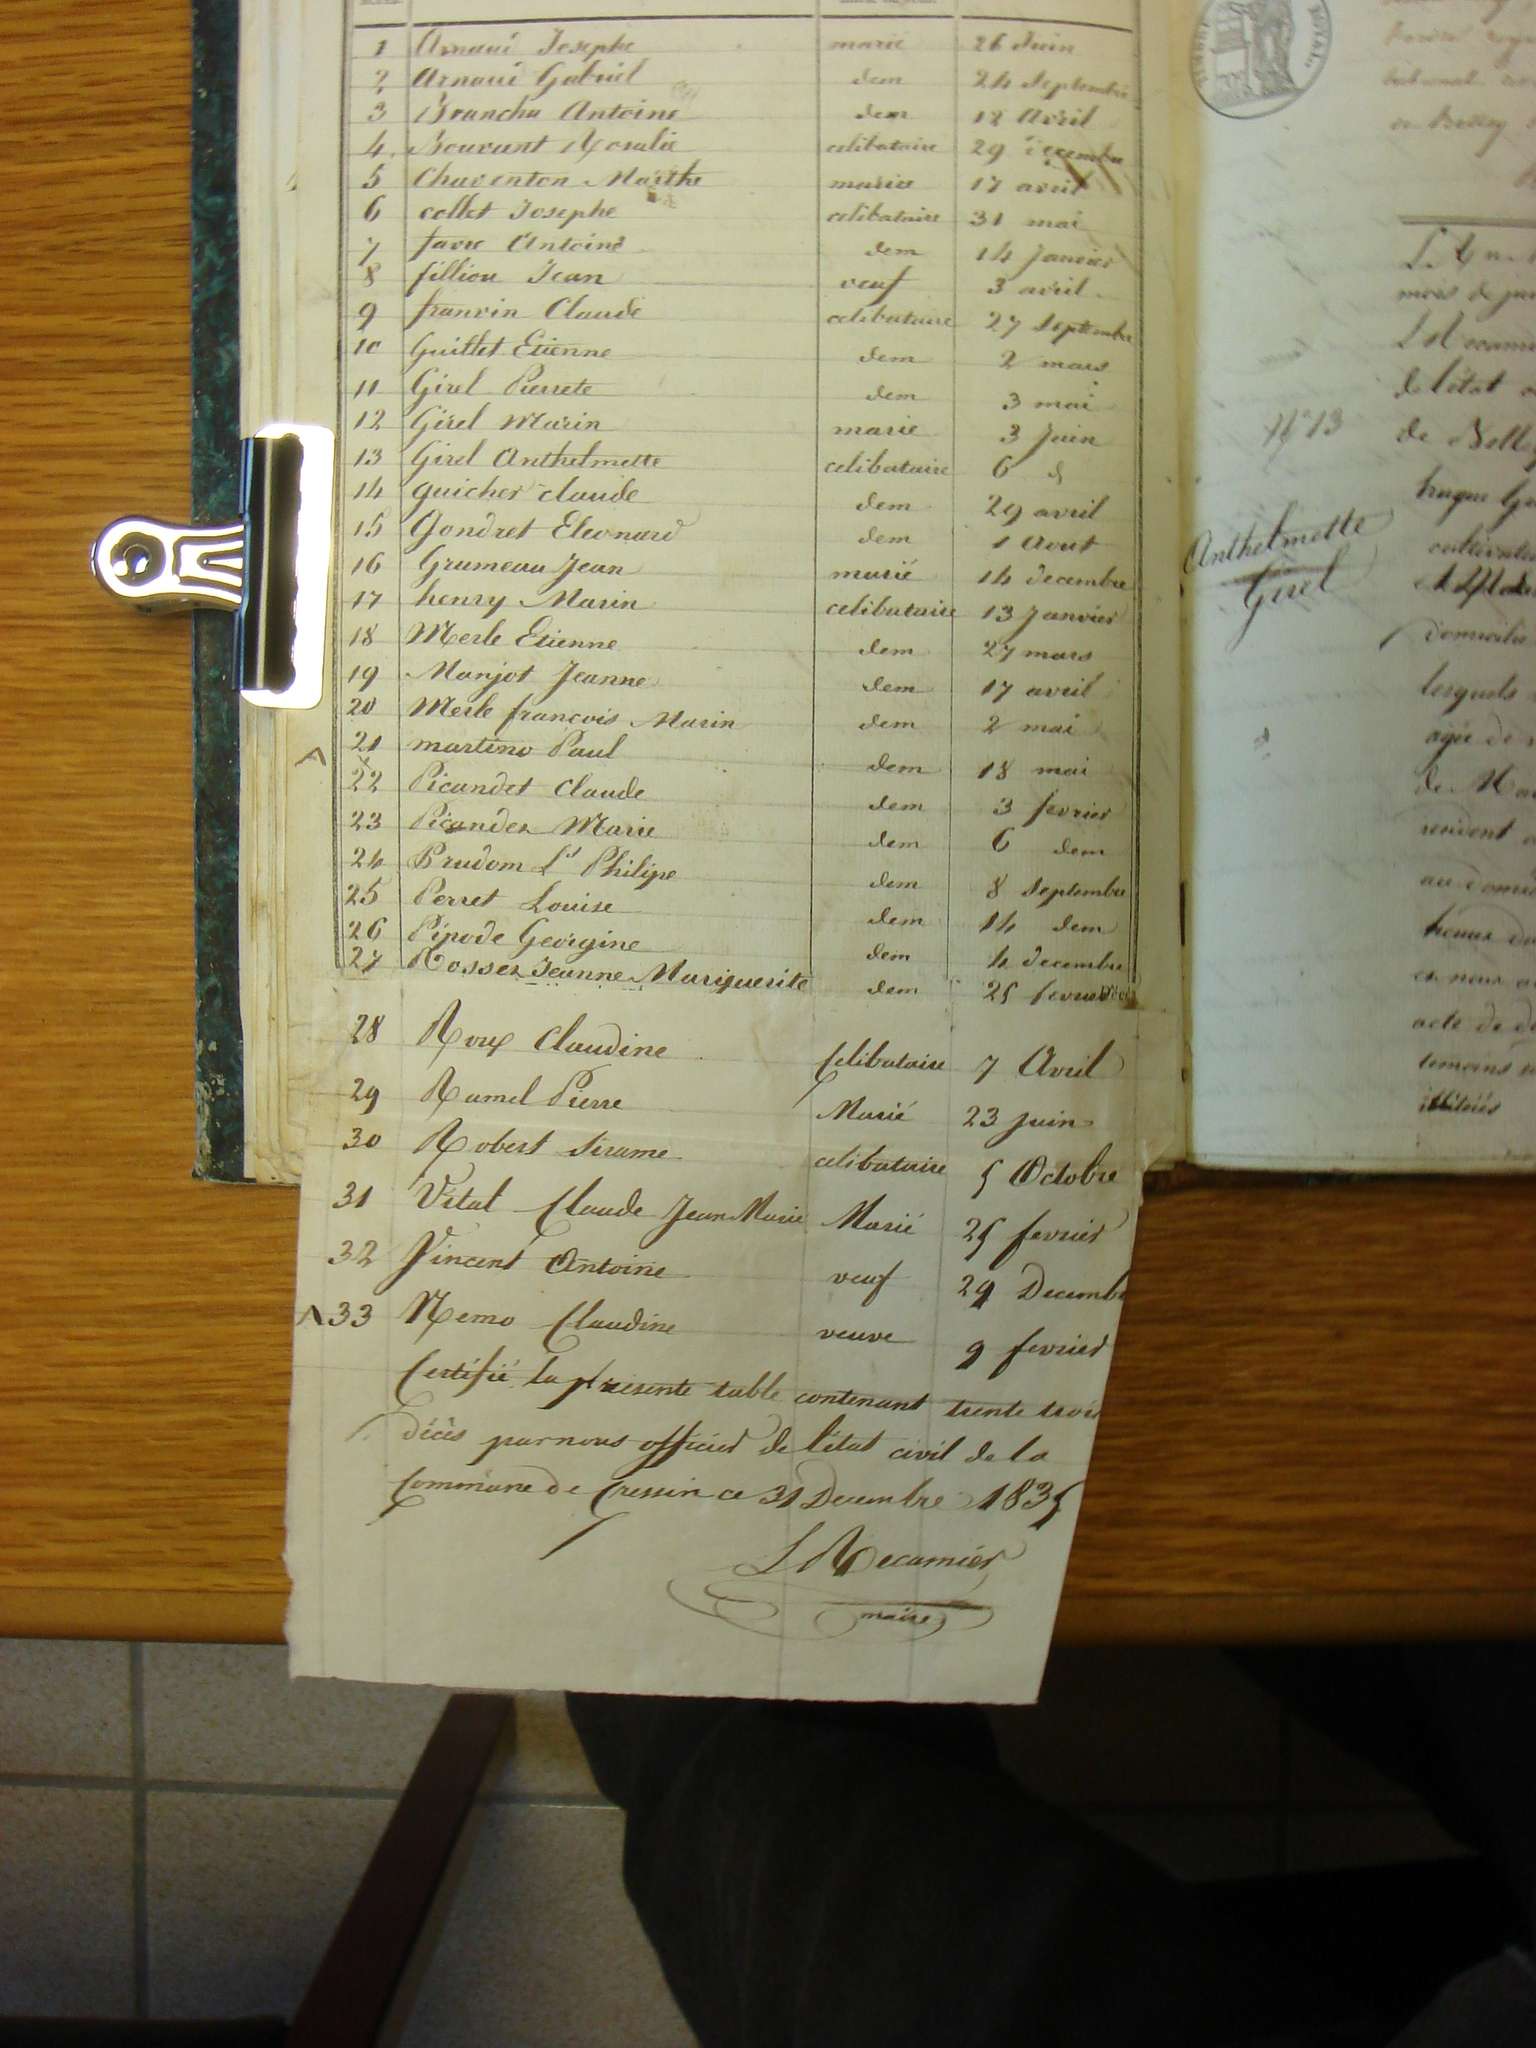 1 Arnaud Josephe marié 26 Juin
2 Arnaud Gabriel dem 24 Septembre
3 Brancha Antoine dem 12 Avril
4 Bouvant Rosalie celibataire 29 decembre
5 Chaventon Marthe mariée 17 avril
6 collet Josephe celibataire 31 mai
7 favre Antoine dem 14 Janvier
8 filliou Jean veuf 3 avril
9 franvin Claude celibataire 27 Septembre
10 Guillet Etienne dem 2 mars
11 Girel Pierrete dem 3 mai
12 Girel Marin marié 3 Juin
13 Girel Anthelmette celibataire 6 d
14 guicher claude dem 29 avril
15 Gondret Eleonard dem 1 Aout
16 Grumeau Jean marié 14 decembre
17 henry Marin celibataire 13 Janvier
18 Merle Etienne dem 27 mars
19 Manjot Jeanne dem 17 avril
20 Merle francois Marin dem 2 mai
21 martino Paul dem 18 mai
22 Picandet Claude dem 3 fevrier
23 Picandet Marie dem 6 dem
24 Prudom Philipe dem 8 Septembre
25 Perret Louise dem 14 dem
26 Pipode Georgine dem 4 decembre
27 Rosset Jeanne Marguerite dem 25 fevrier
28 Roux Claudine Celibataire 7 Avril
29 Ramel Pierre Marié 23 juin
30 Robert celibataire 5 Octobre
31 Vital Claude Jean Marie Marié 25 fevrier
32 Vincent Antoine veuf 29 Decembre
33 Nemo Claudine veuve 9 fevrier
Certifié la présente table contenant trente trois
décès par nous officier de l'état civil de la
Commune de Cressin ce 31 Decembre 1835
L Recamier
maire
N° 13
Anthelmette
Girel
mois de
de l'état
de
domicilié
lesquels
agée de
de
acte de
temoins
illitérés